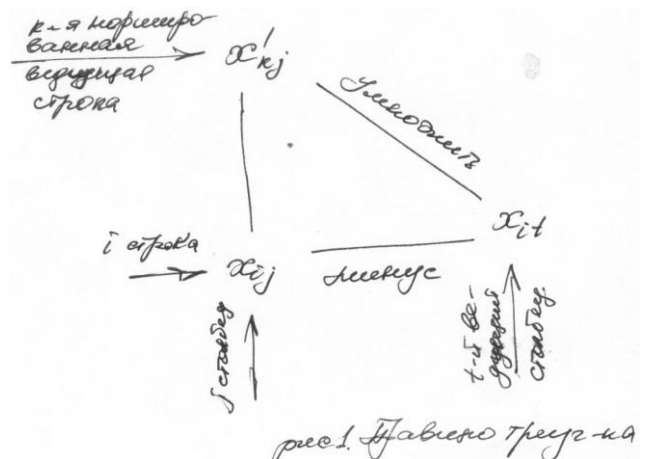 к-я нормиро-
ванная
ведущая
строка
x'kj
Умножить
i строка
xij
минус
xit
j столбец
t-й ве-
дущий
столбец
рис 1. Правило треуг-ка